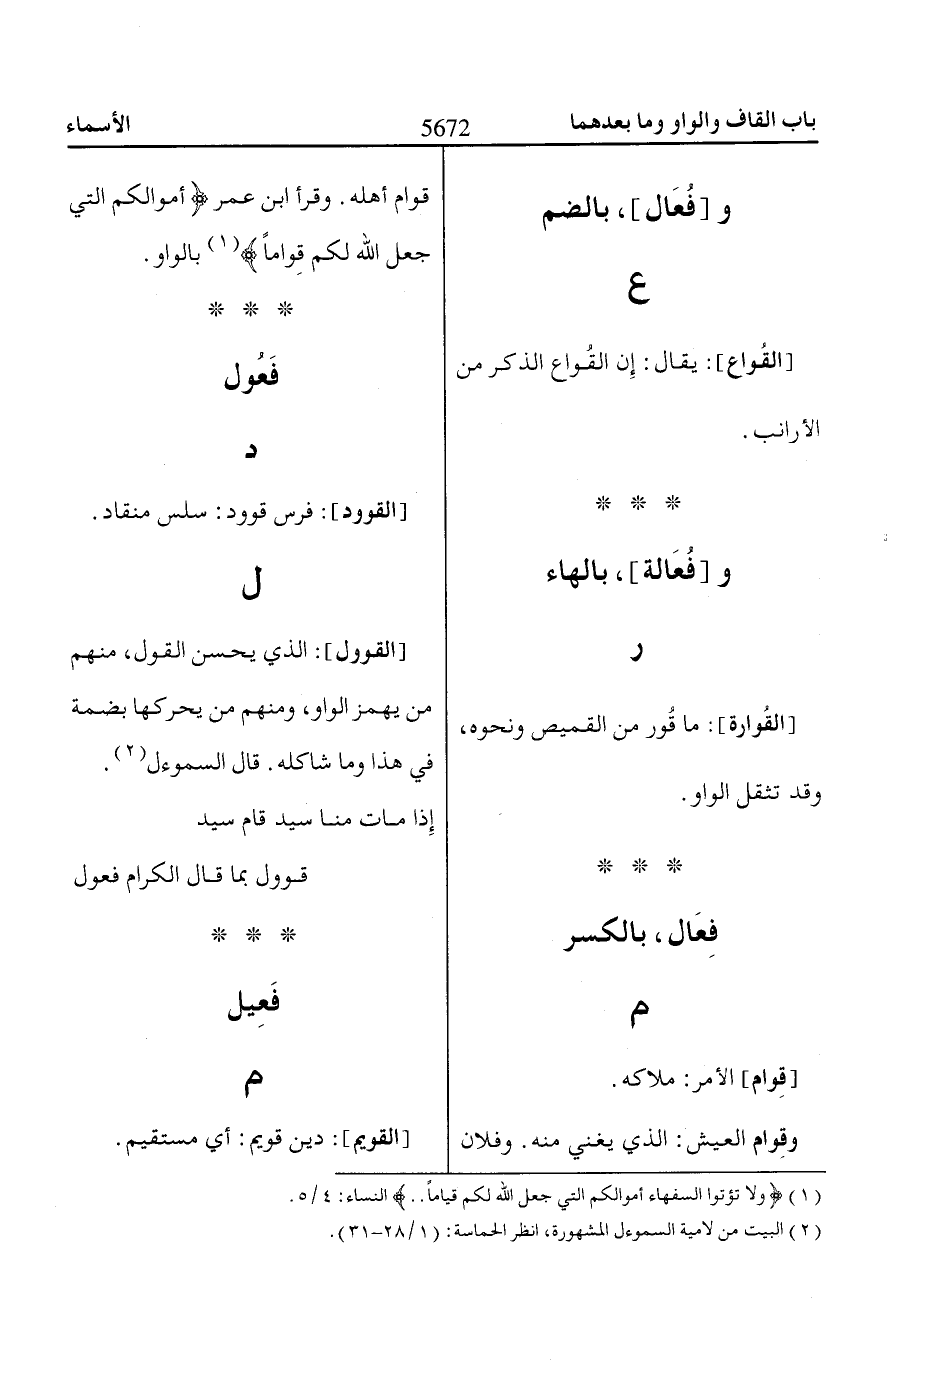 باب القاف والواو وما بعدهما
5672
الأسماء
و [فُعَال]، بالضم
ع
[القُواع]: يقال: إن القُواع الذكر من
الأرانب.
* * *
و [فُعَالة]، بالهاء
ر
[القُوارة]: ما قُور من القميص ونحوه،
وقد تثقل الواو.
* * *
فِعَال، بالكسر
م
[قِوام] الأمر: ملاكه.
وقِوام العيش: الذي يغني منه. وفلان
قوام أهله. وقرأ ابن عمر ﴿ أموالكم التي
جعل الله لكم قِواماً ﴾(١) بالواو.
* * *
فَعُول
د
[القوود]: فرس قوود: سلس منقاد.
ل
[القوول]: الذي يحسن القول، منهم
من يهمز الواو، ومنهم من يحركها بضمة
في هذا وما شاكله. قال السموءل(٢).
إذا مات منا سيد قام سيد
قوول بما قال الكرام فعول
* * *
فَعِيل
م
[القويم]: دين قويم: أي مستقيم.
(١) ﴿ ولا تؤتوا السفهاء أموالكم التي جعل الله لكم قياماً.. ﴾ النساء: ٤/ ٥.
(٢) البيت من لامية السموءل المشهورة، انظر الحماسة: (١/ ٢٨-٣١).